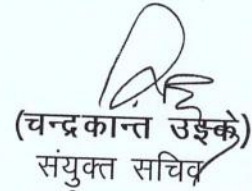 (चन्द्रकान्त उइके)
संयुक्त सचिव